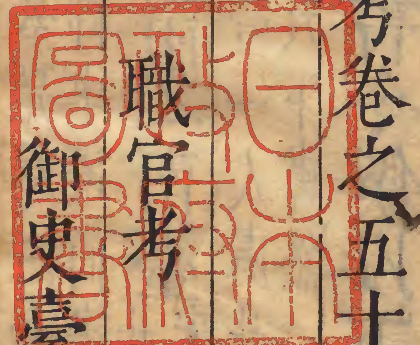 考卷之五十
職官考
御史臺